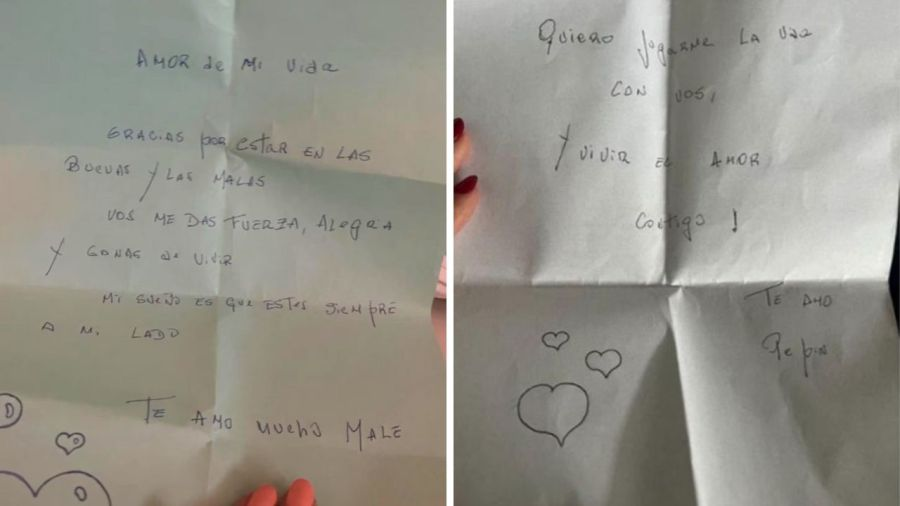 AMOR de MI Vida
GRACIAS por estar EN LAS
BUENAS Y LAS MALAS
VOS ME DAS FUERZA, Alegria
Y GANAS de VIVIR
MI SUEÑO ES QUE ESTES SIEMPRE
A MI LADO
TE AMO mucho MALE
D
Quiero jogarme LA Vida
CON VOS,
Y VIVIR EL AMOR
Contigo !
TE AMO
Pepin